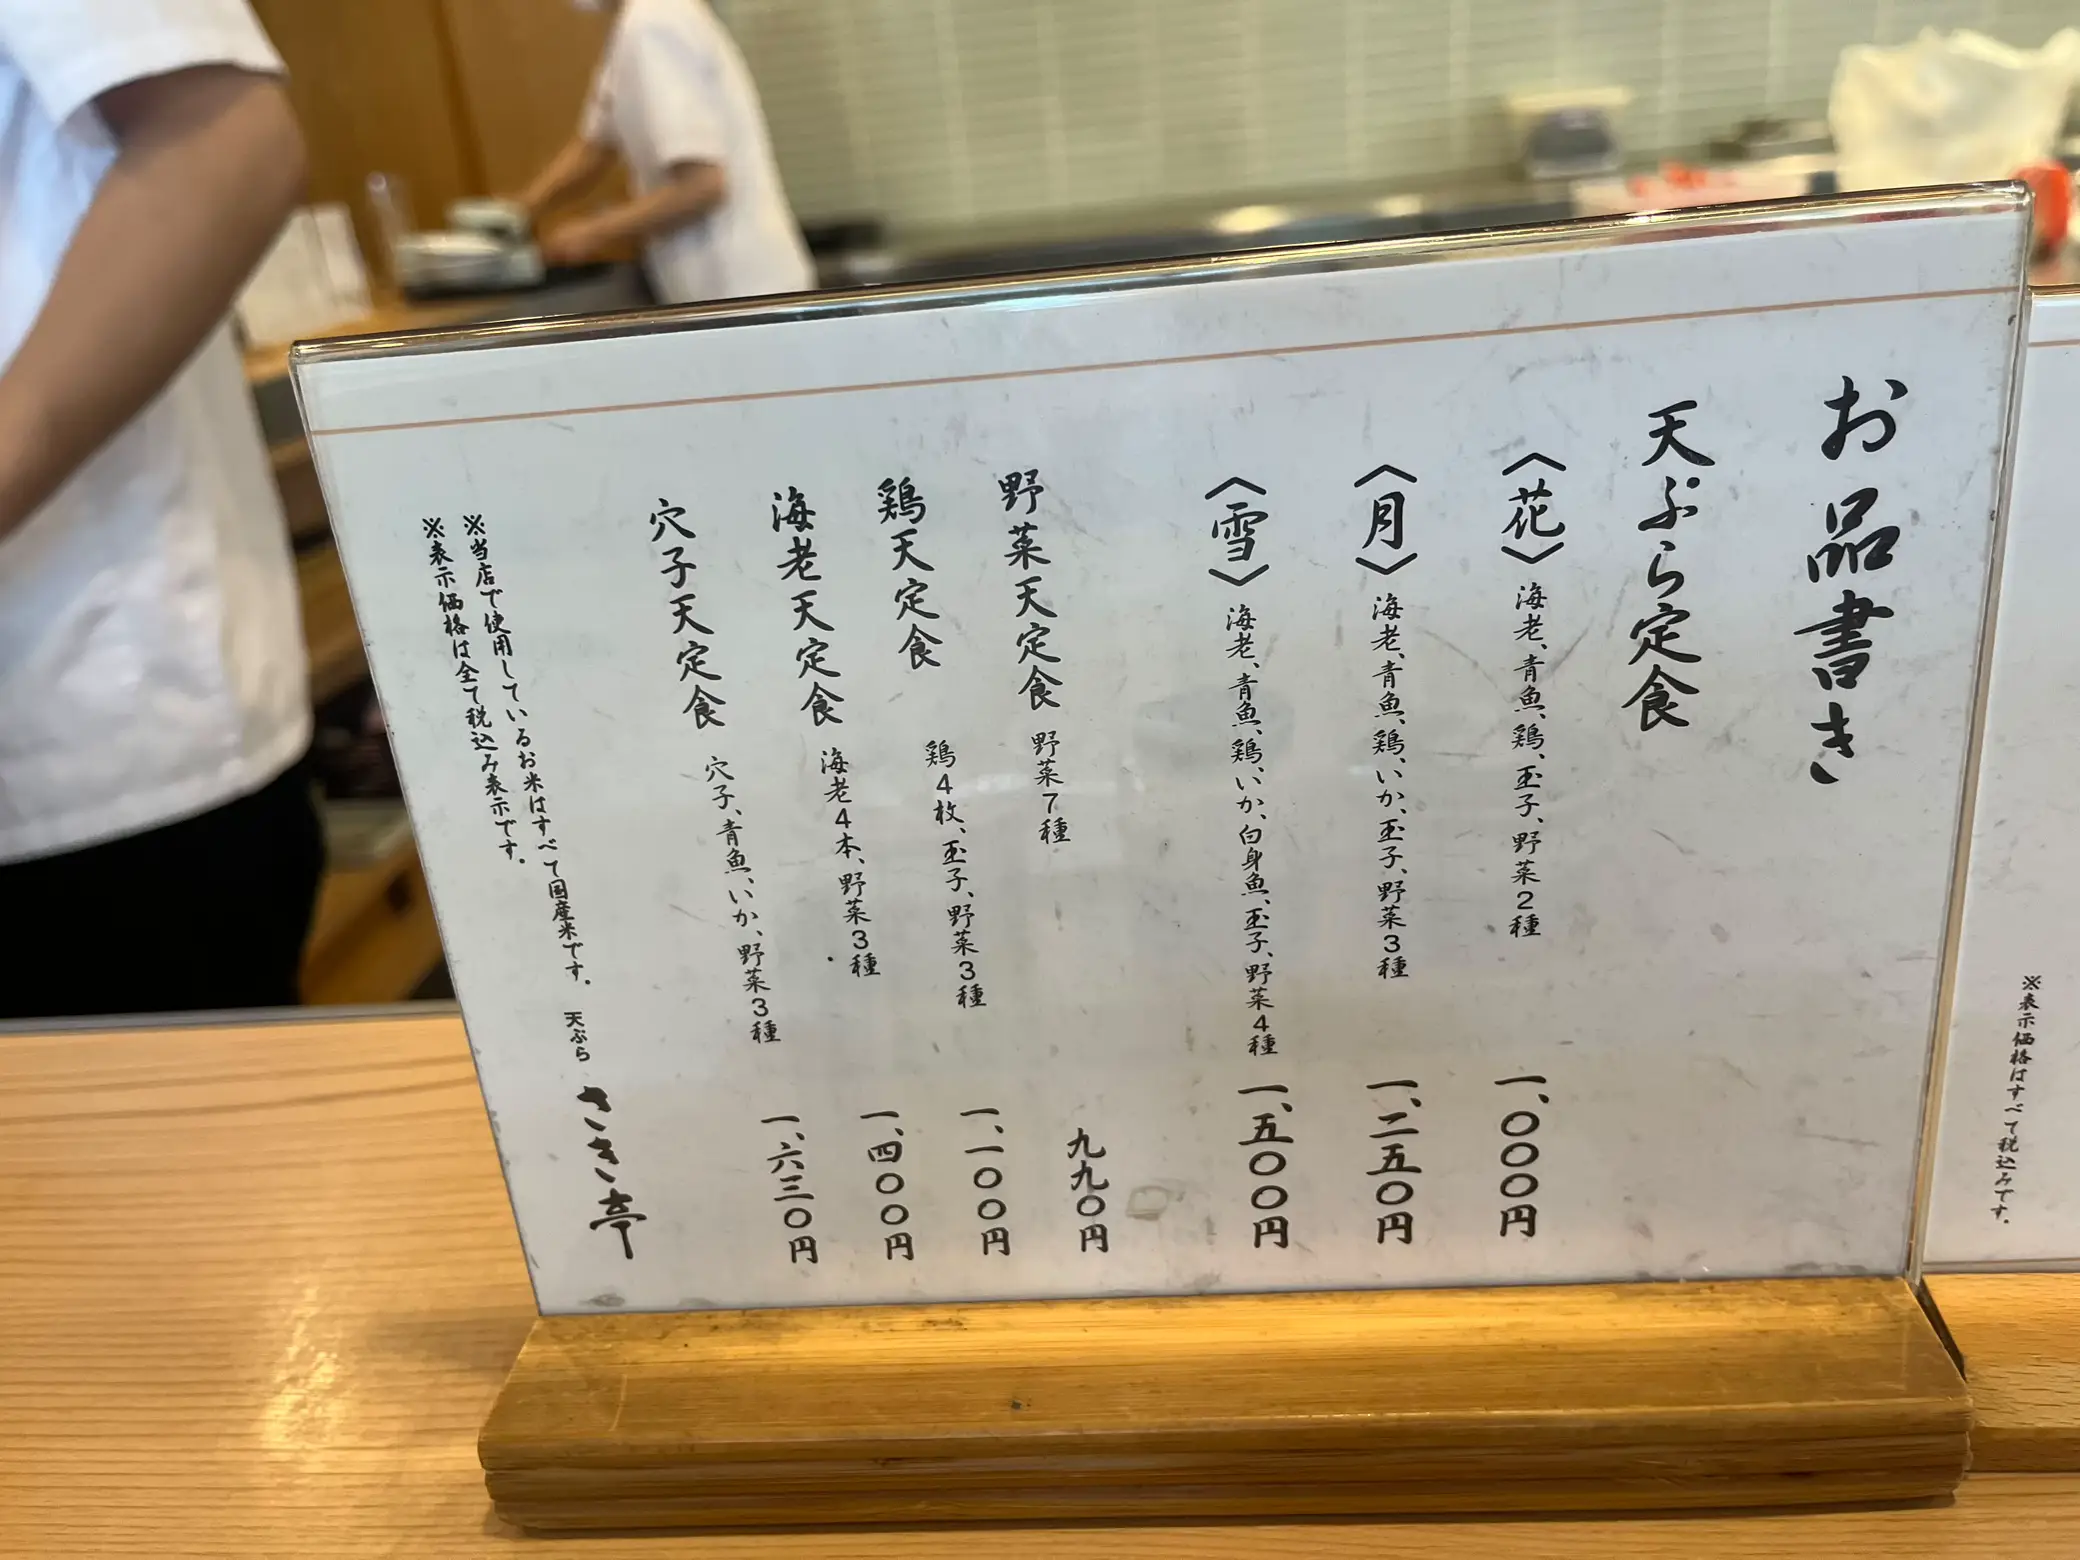 お品書き
天ぷら定食
〈花〉 海老、青魚、鶏、玉子、野菜2種 一、〇〇〇円
〈月〉 海老、青魚、鶏、いか、玉子、野菜3種 一、二五〇円
〈雪〉 海老、青魚、鶏、いか、白身魚、玉子、野菜4種 一、五〇〇円
野菜天定食 野菜7種 九九〇円
鶏天定食 鶏4枚、玉子、野菜3種 一、一〇〇円
海老天定食 海老4本、野菜3種 一、四〇〇円
穴子天定食 穴子、青魚、いか、野菜3種 一、六三〇円
※当店で使用しているお米はすべて国産米です。
※表示価格は全て税込み表示です。
天ぷら さき亭
※表示価格はすべて税込みです。